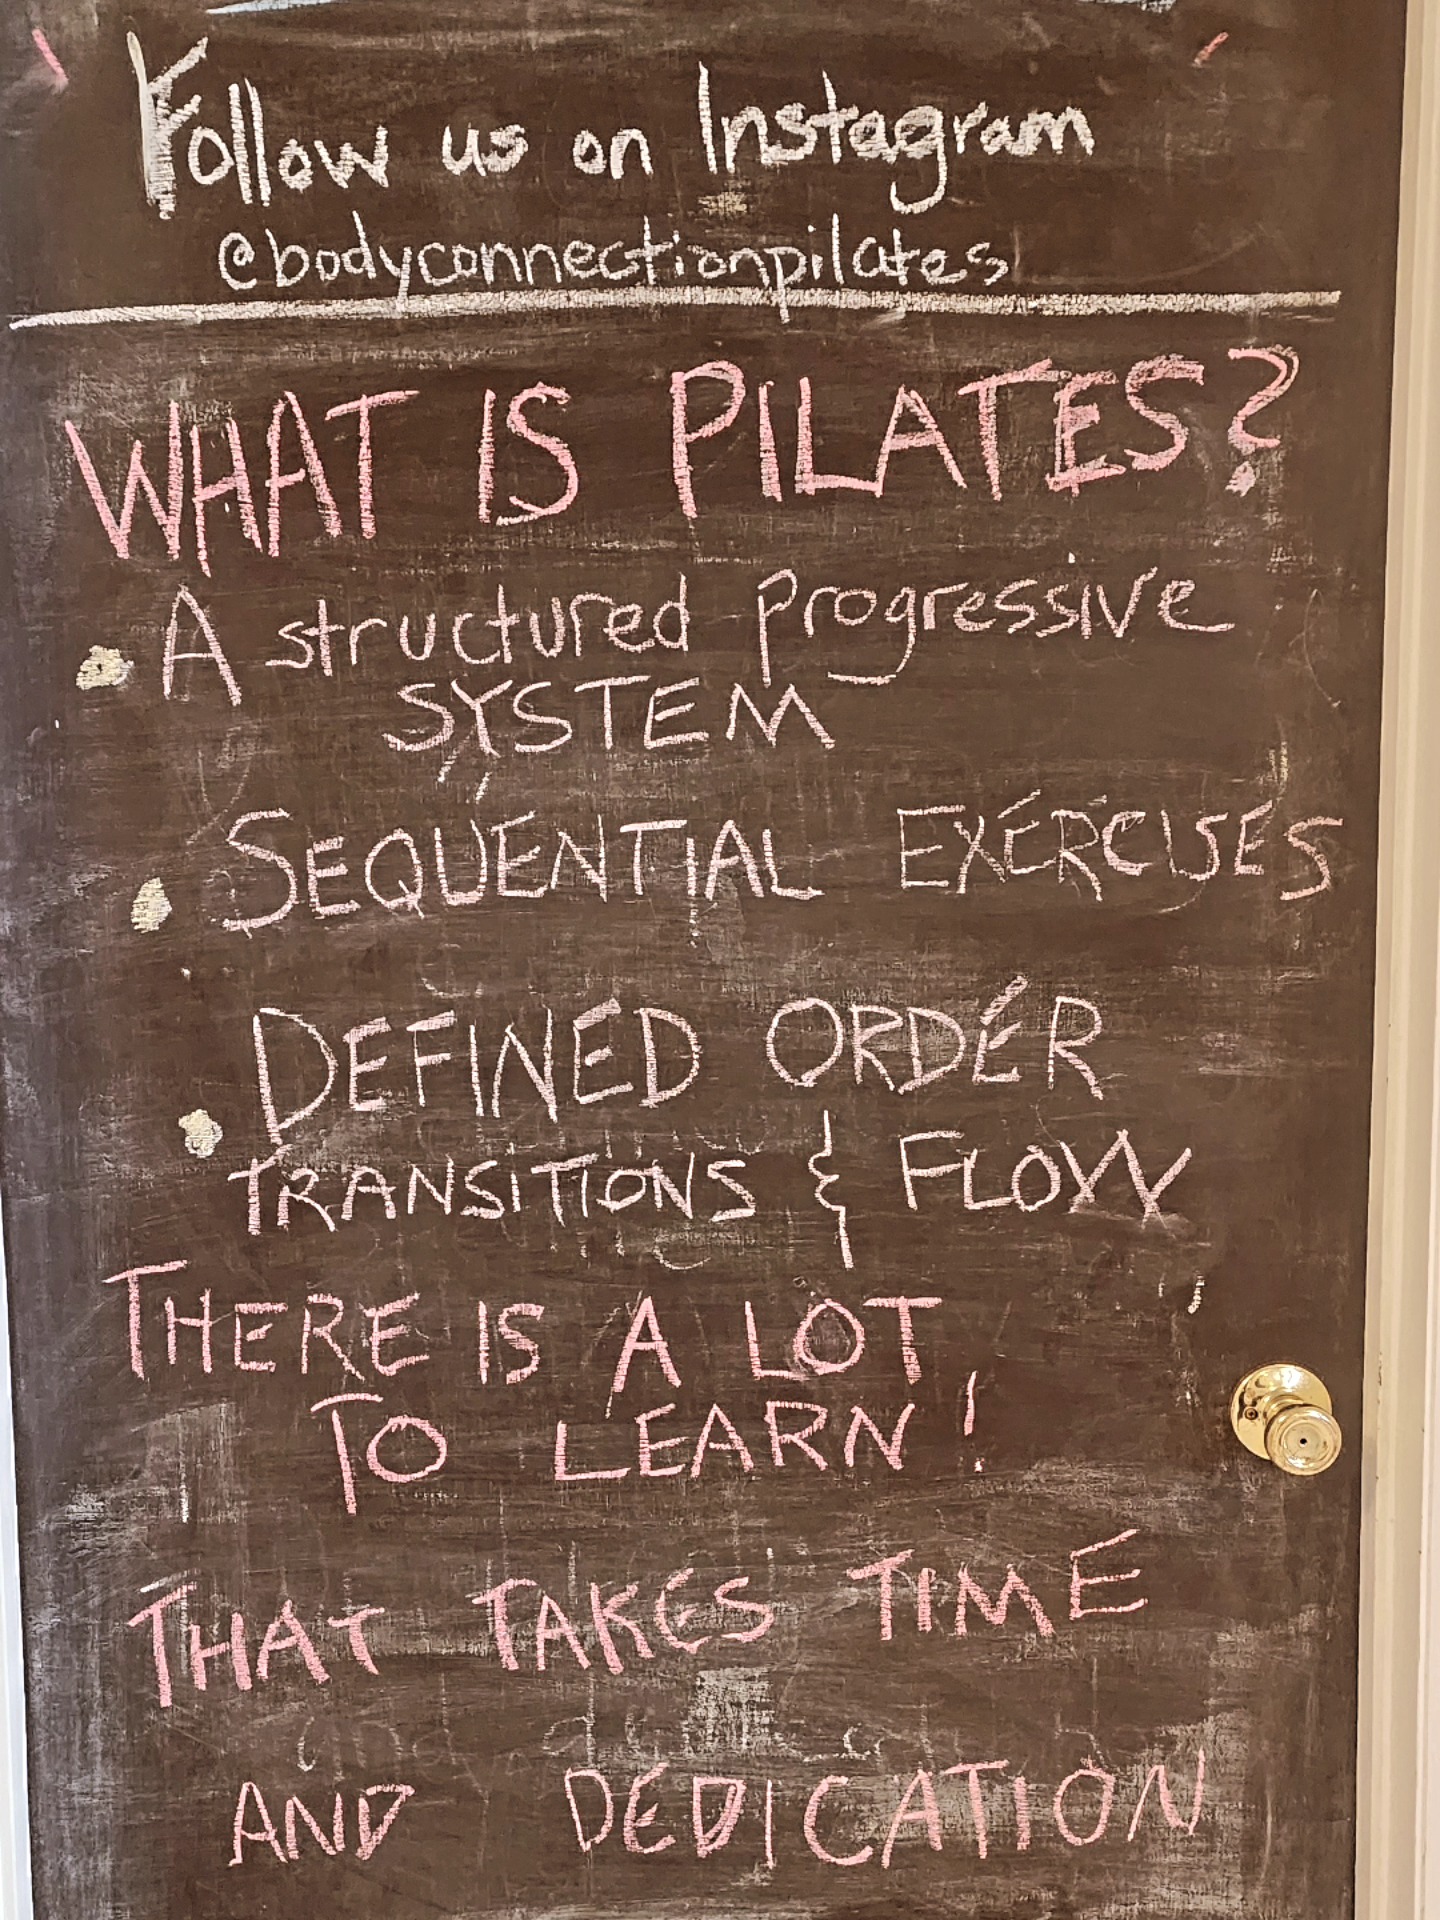 Follow us on Instagram
@bodyconnectionpilates
WHAT IS PILATES?
• A structured progressive
SYSTEM
• SEQUENTIAL EXERCISES
• DEFINED ORDER
TRANSITIONS & FLOW
THERE IS A LOT
TO LEARN!
THAT TAKES TIME
AND DEDICATION